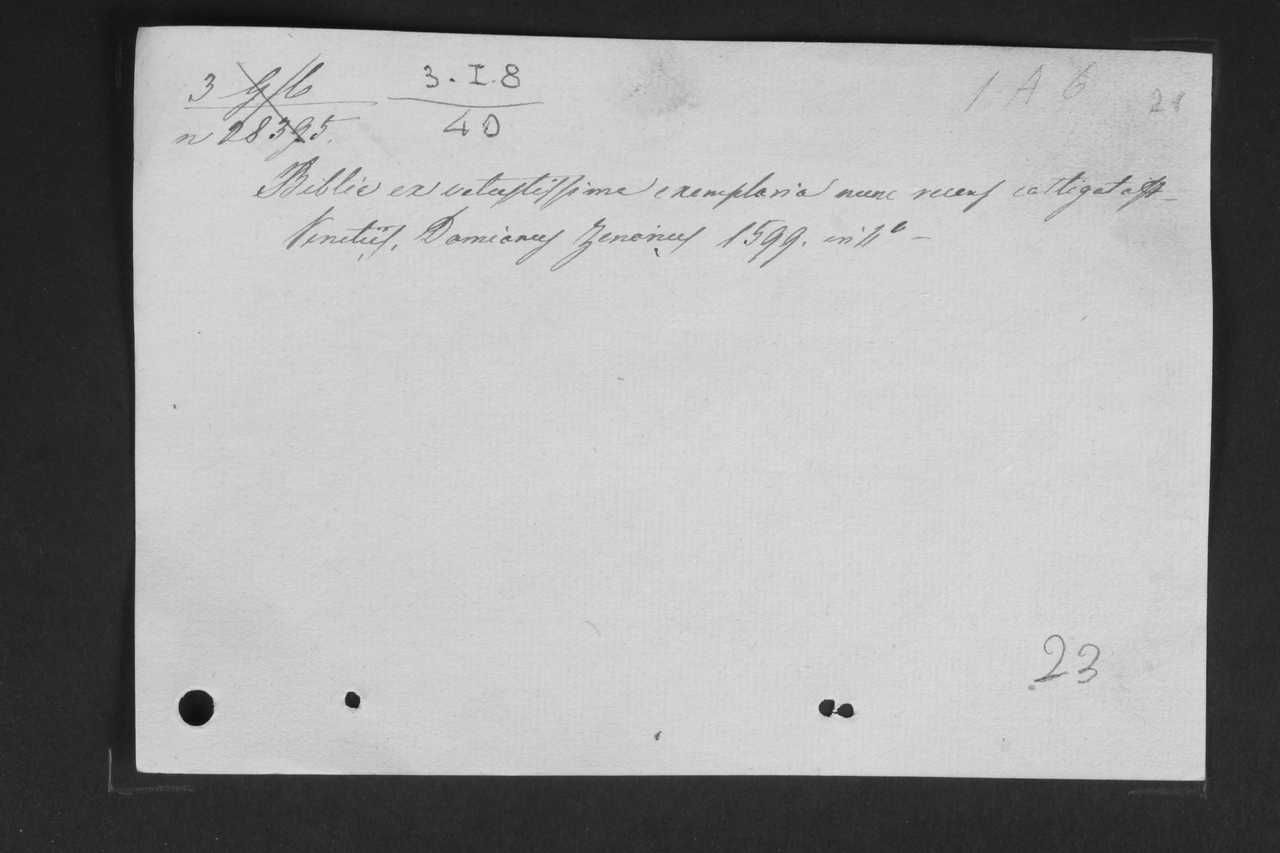 3 G/6 3.I.8
n 28395. 40
1 A 6
28
Biblia ex vetustissima exemplaria nunc recens castigata
Venetiis, Damianus Zenarius 1599. in 4° –
23